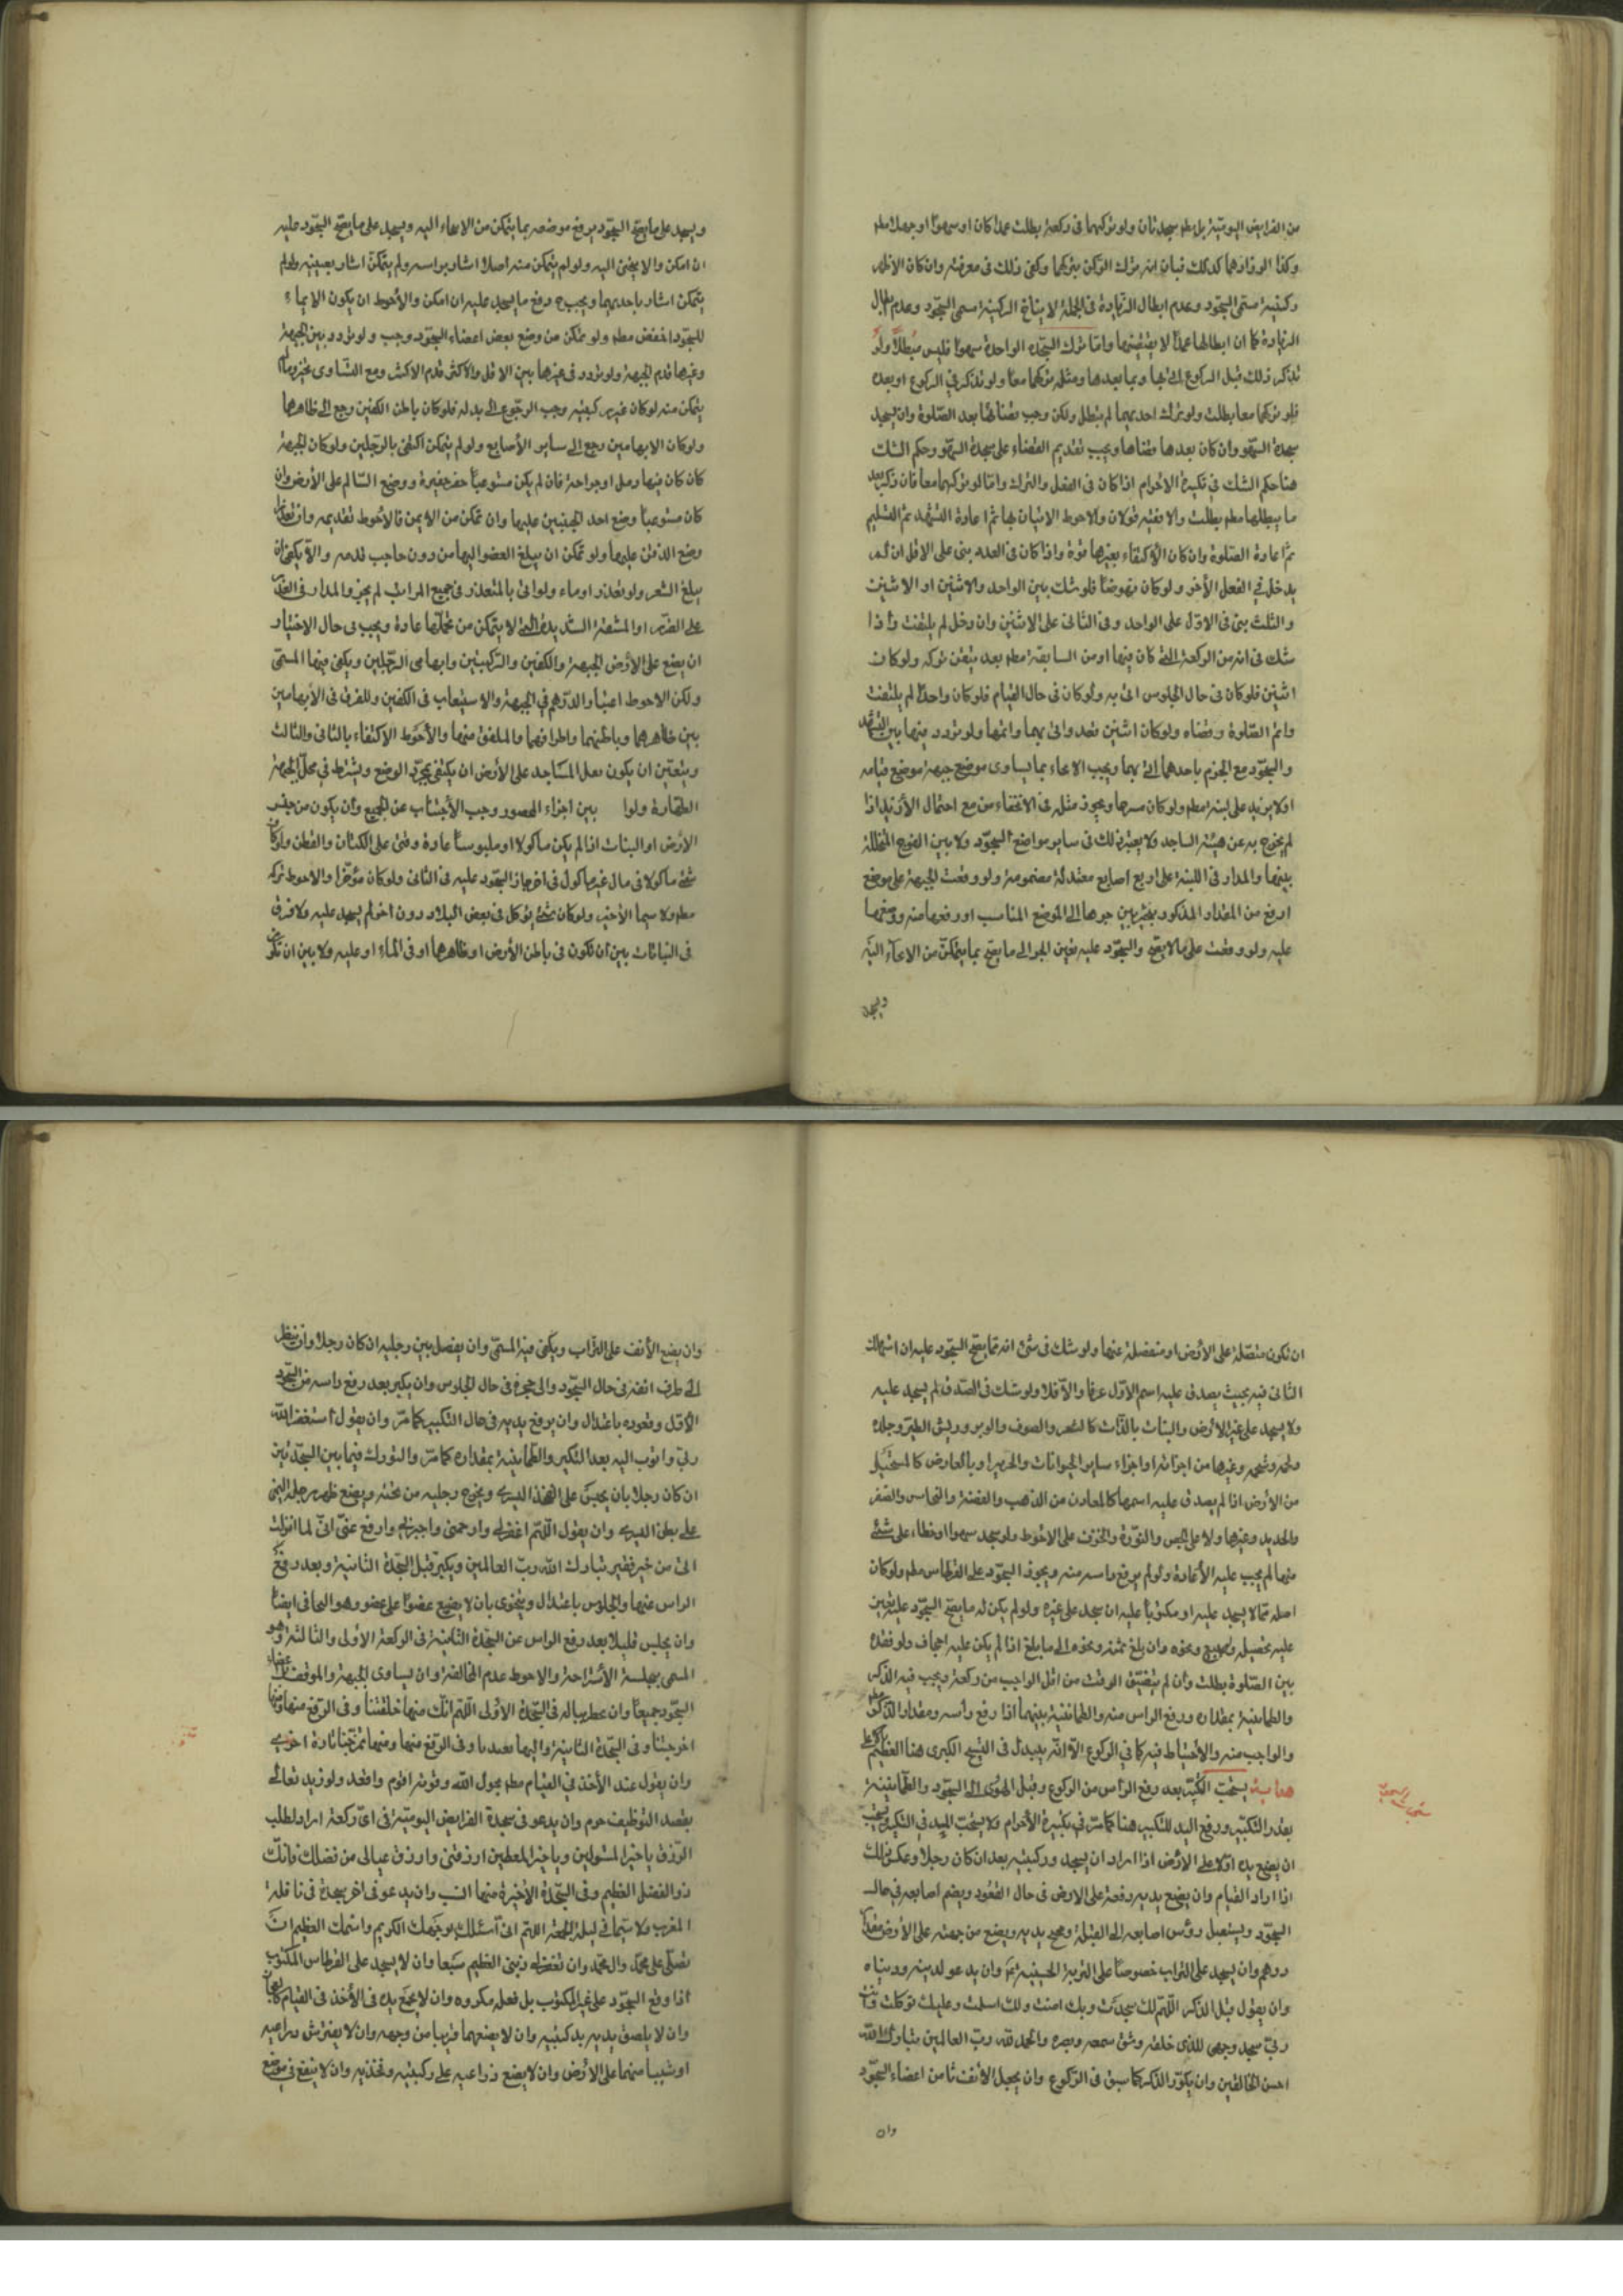 من الفرايض اليومية بل مطم سجدتان ولو تركهما فى ركعة بطلت عمدا كان او سهوا او جهلا مطم
وكذا لو زادهما كذلك فبان انه ترك الركن بتركهما وكفى ذلك فى معرفته وان كان الاظهر
ركنية مسمى السجود وعدم ابطال الزيادة فى الجملة لا ينافى الركنية مسمى السجود وعدم ابطال
الزيادة كما ان ابطالها عمدا لا يقتضيها واما ترك السجدة الواحدة سهوا فليس مبطلا ولو
تذكر ذلك قبل الركوع اتى بها وبما بعدها ومثله تركهما معا ولو تذكر فى الركوع او بعده
فلو تركهما معا بطلت ولو ترك احديهما لم تبطل ولكن وجب قضائها بعد الصلوة وان يسجد
سجدة السهو وان كان بعدها قضاها ويجب تقديم القضاء على سجدة السهو وحكم الشك
هنا حكم الشك فى تكبيرة الاحرام اذا كان فى الفعل والترك واما لو تركهما معا فان ذكر بعد
ما يبطلها مطم بطلت والا ففيه قولان والاحوط الاتيان بها ثم اعادة التشهد ثم التسليم
ثم اعادة الصلوة وان كان الاكتفاء بغيرها قوة واذا كان فى العدد بنى على الاقل ان لم
يدخل فى الفعل الآخر ولو كان نهوضا فلو شك بين الواحد والاثنين او الاثنين
والثلث بنى فى الاول على الواحد وفى الثانى على الاثنين وان دخل لم يلتفت واذا
شك فى انه من الركعة التى كان فيها او من السابقة مطم بعد تيقن تركه ولو كان
اثنين فلو كان فى حال الجلوس اتى به ولو كان فى حال القيام فلو كان واحدا لم يلتفت
واتم الصلوة وقضاه ولو كان اثنين قعد واتى بهما واتمها ولو تردد فيها بين التشهد
والسجود مع الجزم باحدهما اتى بهما ويجب الانحناء بما يساوى موضع جبهته موضع قيامه
او لا يزيد على لبنة مطم ولو كان سرها ويجوز مثله فى الانخفاء من مع احتمال الازيد اذا
لم يخرج به عن هيئة الساجد ولا يعتبر ذلك فى ساير مواضع السجود ولا بين الفرج المتخللة
بينها والمدار فى اللبنة على اربع اصابع معتدلة مضمومة ولو وقعت الجبهة على موضع
ارفع من المقدار المذكور تخير بين جرها الى الموضع المناسب او رفعها منه ووضعها
عليه ولو وقعت على ما لا يصح والسجود عليه تعين الجر الى ما يصح بما يتمكن من الانحناء اليه
ويسجد
ويسجد على ما يصح السجود يرفع موضعه بما يتمكن من الانحناء اليه ويسجد على ما يصح السجود عليه
ان امكن والا ينحنى اليه ولو لم يتمكن منه اصلا اشار براسه ولم يتمكن اشار بعينيه ولو لم
يتمكن اشار باحديهما ويجب ح رفع ما يسجد عليه ان امكن والأحوط ان يكون الايماء
للسجود اخفض مطم ولو تمكن من وضع بعض اعضاء السجود وجب ولو تردد بين الجبهة
وغيرها قدم الجبهة ولو تردد فى غيرها بين الاقل والاكثر قدم الاكثر ومع التساوى تخير وما لم
يتمكن منه لو كان غيره كيفيه وجب الرجوع الى بدله فلو كان باطن الكفين رجع الى ظاهرهما
ولو كان الابهامين رجع الى ساير الأصابع ولو لم يتمكن اكتفى بالرجلين ولو كان الجبهة
كان كان فيها دمل او جراحة فان لم يكن مستوعبا حفر حفيرة ووضع السالم على الأرض وان
كان مستوعبا وضع احد الجبينين عليها وان تمكن من الايمن فالاحوط تقديمه وان تعذرا
وضع الذقن عليها ولو تمكن ان يبلغ العضو اليها من دون حاجب قدمه والا يكفى ان
يبلغ الشعر ولو تعذر اوماء ولو اتى بالمتعذر فى جميع المراتب لم يجز والمدار فى العذر
على الضرر او المشقة الشديدة التى لا يتمكن من تحملها عادة ويجب فى حال الاختيار
ان يضع على الأرض الجبهة والكفين والركبتين وابهامى الرجلين ويكفى فيها المسمى
ولكن الاحوط اعتبار الدرهم فى الجبهة والاستيعاب فى الكفين وللفرق فى الأبهامين
بين ظاهرهما وباطنهما واطرافهما والملفق منها والأحوط الاكتفاء بالثانى والثالث
ويتعين ان يكون معل المساجد على الأرض ان يكتفى بمجرد الوضع ويشترط فى محل الجبهة
الطهارة ولوا بين اجزاء المحصور وجب الأجتناب عن الجميع وان يكون من جنس
الأرض او النبات اذا لم يكن ماكولا او ملبوسا عادة وفى على الكتان والقطن ولو كان
شئ ماكولا فى مال غير ماكول فى اخر جاز السجود عليه فى الثانى ولو كان مؤخرا والاحوط تركه
مطم ولا سيما الأخير ولو كان شئ يؤكل فى بعض البلاد دون اخر لم يسجد عليه ولا فرق
فى النباتات بين ان تكون فى باطن الأرض او ظاهرها او فى الماء او عليه ولا بين ان تكون
ان تكون متصلة على الأرض او منفصلة عنها ولو شك فى شئ انه مما يصح السجود عليه ان استهلك
الثانى فيه بحيث يصدق عليه اسم الاول عرفا والا فلا ولو شك فى الصدق لم يسجد عليه
ولا يسجد على غير الأرض والنبات بالذات كالشعر والصوف والوبر وريش الطير وجلده
ولحمه وشحمه وغيرها من اجزائه او اجزاء ساير الحيوانات والحرير او بالعارض كالمستحيل
من الأرض اذا لم يصدق عليه اسمها كالمعادن من الذهب والفضة والنحاس والصفر
والحديد وغيرها ولا على الجص والنورة والخزف على الاحوط ولو سجد سهوا او خطاء على شئ
منها لم يجب عليه الأعادة ولو لم يرفع راسه منه ويجوز السجود على القرطاس مطم ولو كان
اصله مما لا يسجد عليه او مكتوبا عليه ان سجد على غيره ولو لم يكن له ما يصح السجود عليه تعين
عليه تحصيله ولو ببيع ونحوه وان بلغ ثمنه ونحوه الى ما بلغ اذا لم يكن عليه اجحاف ولو فقده
بين الصلوة بطلت وان لم يتضيق الوقت من اقل الواجب من ركعة ويجب فيه الذكر
والطمانينة بمقداره ورفع الراس منه والطمانينة بينهما اذا رفع راسه ومقدار الذكر
والواجب منه والاحتياط فيه كما فى الركوع الا انه يبدل فى التسبيح الكبرى هنا العظيم بالاعلى
هداية يستحب التكبير بعد رفع الراس من الركوع وقبل الهوى الى السجود والطمانينة
بقدر التكبير ورفع اليد للتكبير هنا كما مر فى تكبيرة الأحرام ولا يستحب المد فى التكبير ويستحب
ان يضع يده اولا على الأرض اذا اراد ان يسجد وركبتيه بعد ان كان رجلا وعكس ذلك
اذا اراد القيام وان يضع يديه دفعة على الارض فى حال القعود ويضم اصابعه فى حال
السجود ويستقبل رؤس اصابعه الى القبلة ويجنح يديه ويضع من جبهته على الأرض مقدار
درهم وان يسجد على التراب خصوصا على التربة الحسينية ثم وان يدعو لدينه ودنياه
وان يقول قبل الذكر اللهم لك سجدت وبك امنت ولك اسلمت وعليك توكلت وانت
ربى سجد وجهى للذى خلقه وشق سمعه وبصره والحمد لله رب العالمين تبارك الله
احسن الخالقين وان يكرر الذكر كما سبق فى الركوع وان يجعل الانف ثامن اعضاء السجود
وان
وان يضع الأنف على التراب ويكفى فيه المسمى وان يفصل بين رجليه ان كان رجلا وان ينظر
الى طرف انفه فى حال السجود والى حجره فى حال الجلوس وان يكبر بعد رفع راسه من السجود
الاول وقعوده باعتدال وان يرفع يديه فى حال التكبير كما مر وان يقول استغفر الله
ربى واتوب اليه بعد التكبير والطمانينة بمقداره كما مر والتورك فيما بين السجدتين
ان كان رجلا بان يجلس على الفخذ اليسرى ويخرج رجليه من تحته ويضع ظهر رجله اليمنى
على بطن اليسرى وان يقول اللهم اغفر لى وارحمنى واجبرنى وارفع عنى انى لما انزلت
الى من خير فقير تبارك الله رب العالمين ويكبر قبل السجدة الثانية وبعد رفع
الراس منها والجلوس باعتدال ويتخوى بان لا يضع عضوا على عضو وهو التجافى ايضا
وان يجلس قليلا بعد رفع الراس عن السجدة الثانية فى الركعة الاولى والثالثة وهو
المسمى بجلسة الأستراحة والاحوط عدم المخالفة وان يساوى الجبهة والموقف اعضاء
السجود جميعا وان يخطر بباله فى السجدة الأولى اللهم انك منها خلقتنا وفى الرفع منها ومنها
اخرجتنا وفى السجدة الثانية واليها تعيدنا وفى الرفع منها ومنها تخرجنا تارة اخرى
وان يقول عند الأخذ فى القيام مطم بحول الله وقوته اقوم واقعد ولو زيد تعالى
بقصد التوظيف حرم وان يدعو فى سجدة الفرايض اليومية فى اى ركعة اراد لطلب
الرزق يا خير المسئولين ويا خير المعطين ارزقنى وارزق عيالى من فضلك فانك
ذو الفضل العظيم وفى السجدة الأخيرة منها انسب وان يدعو فى اخر سجدة فى نافلة
المغرب ولا سيما فى ليلة الجمعة اللهم انى اسئلك بوجهك الكريم واسمك العظيم ان
تصلى على محمد وال محمد وان تغفر لى ذنبى العظيم سبعا وان لا يسجد على القرطاس المكتوب
اذا وقع السجود على غير المكتوب بل فعله مكروه وان لا يجمع يده فى الأخذ فى القيام كالعاجن
وان لا يلصق يديه بركبتيه وان لا يضعهما قريبا من وجهه وان لا يفترش ذراعيه
او شيئا منهما على الارض وان لا يضع ذراعيه على ركبتيه وفخذيه وان لا ينفخ فى موضع